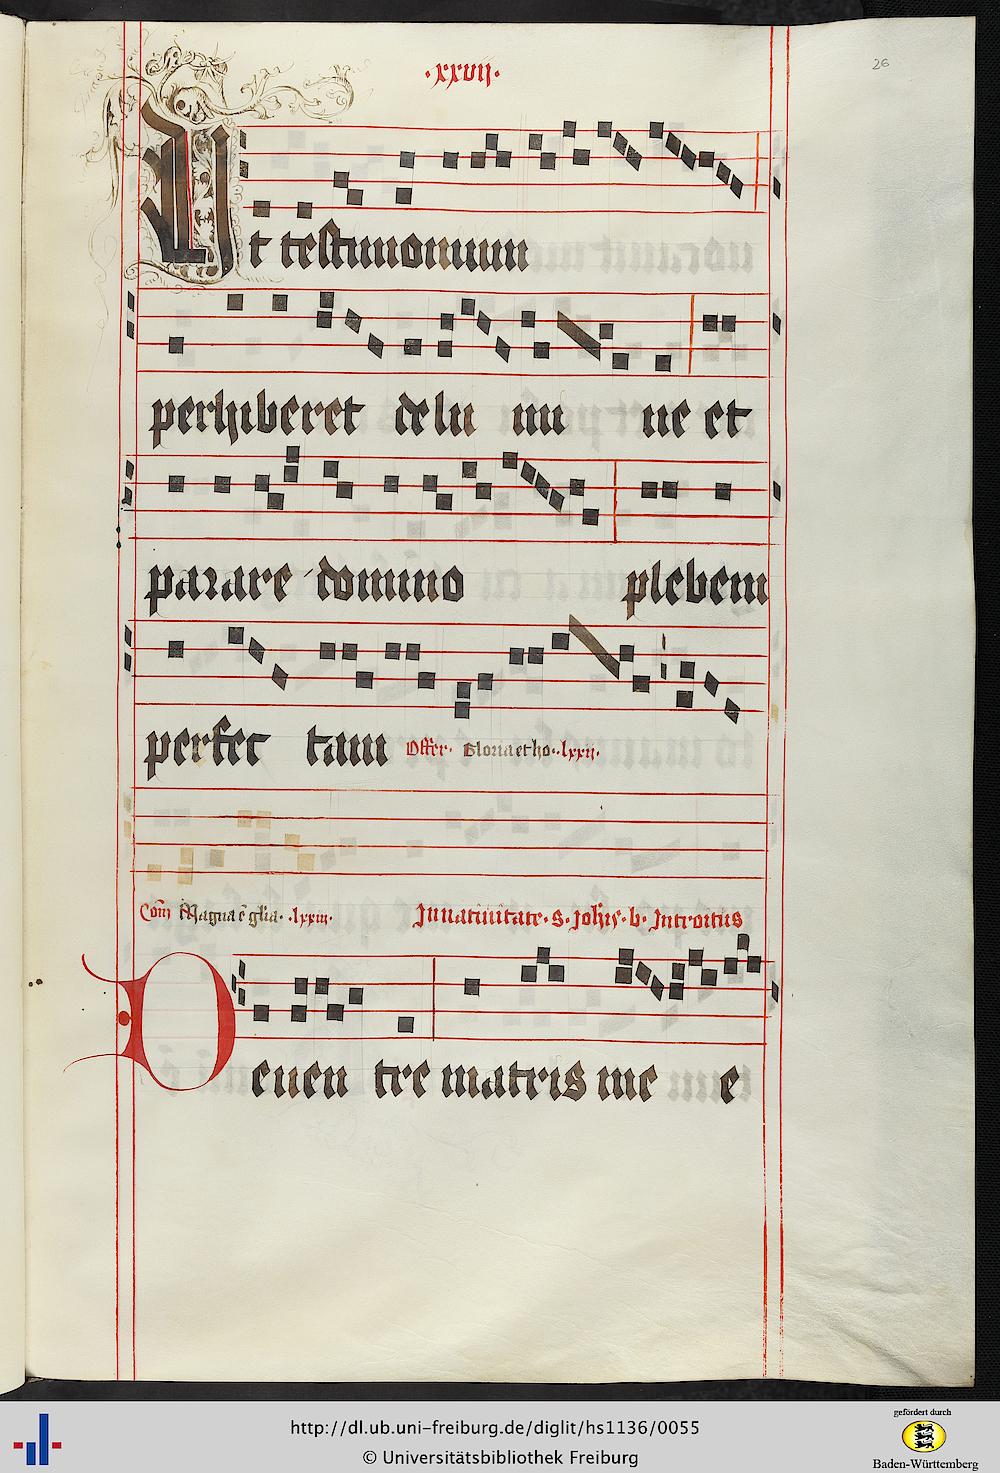 ·xxvii·
26
Ut testimonium
perhiberet de lu mi ne et
parare domino plebem
perfec tam Offer. Gloria et ho. lxxii.
Com Magna e glia. lxxiii. In nativitate. s. johis. b. Introitus
De ven tre matris me e
http://dl.ub.uni-freiburg.de/diglit/hs1136/0055
© Universitätsbibliothek Freiburg
gefördert durch
Baden-Württemberg